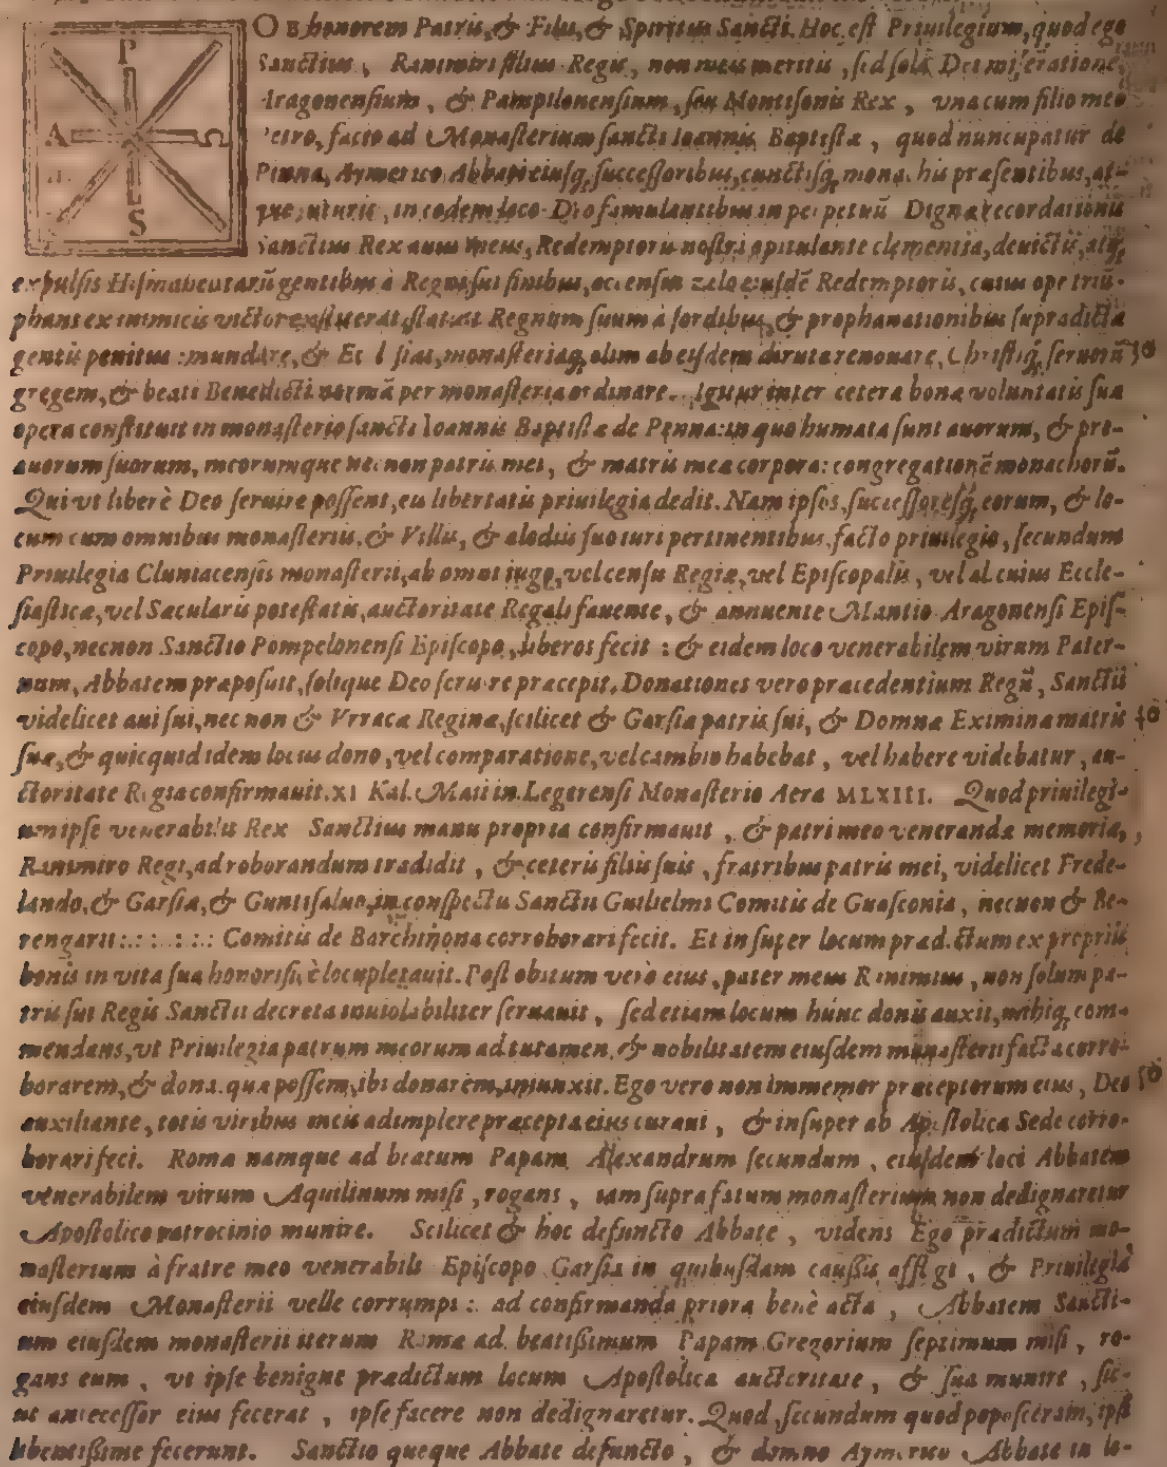 OB honorem Patris, & Filii, & Spiritus Sancti. Hoc est Priuilegium, quod ego
P
Sanctius, Ranimiri filius Regis, non meis meritis, sed sola Dei miseratione,
Aragonensium, & Pampilonensium, seu Montisonis Rex, vna cum filio meo
A Ω
Petro, facio ad Monasterium sancti Ioannis Baptistæ, quod nuncupatur de
Pinna, Aymerico Abbati eiusq; successoribus, cunctisq; monachis præsentibus, at-
que futuris, in eodem loco Deo famulantibus in perpetuũ Dignæ recordationis
S
Sanctius Rex auus meus, Redemptoris nostri opitulante clementia, deuictis, atq;
expulsis Hismaheutarũ gentibus à Regni sui finibus, accensus zelo eiusdẽ Redemptoris, cuius ope triũ-
phans ex inimicis victor extiterat, statuit Regnum suum à sordibus, & prophanationibus supradictæ
gentis penitus mundare, & Ecclesias, monasteriaq; olim ab eisdem diruta renouare, Christiq; seruorũ 30
gregem, & beati Benedicti normã per monasteria ordinare. Igitur inter cetera bonæ voluntatis suæ
opera constituit in monasterio sancti Ioannis Baptistæ de Pinna: in quo humata sunt auorum, & pro-
auorum suorum, meorumque necnon patris mei, & matris meæ corpora: congregationẽ monachorũ.
Qui vt liberè Deo seruire possent, eis libertatis priuilegia dedit. Nam ipsos, successoresq; eorum, & lo-
cum cum omnibus monasteriis, & Villis, & alodiis suo iuri pertinentibus, facto priuilegio, secundum
Priuilegia Cluniacensis monasterii, ab omni iugo, vel censu Regiæ, vel Episcopalis, vel alicuius Eccle-
siasticæ, vel Sæcularis potestatis, auctoritate Regali fauente, & annuente Mantio Aragonensi Epis-
copo, necnon Sanctio Pompelonensi Episcopo, liberos fecit: & eidem loco venerabilem virum Pater-
num, Abbatem præposuit, solique Deo seruire præcepit. Donationes vero præcedentium Regũ, Sanctii
videlicet aui sui, nec non & Vrracæ Reginæ, scilicet & Garsia patris sui, & Domnæ Eximina matris 40
suæ, & quicquid idem locus dono, vel comparatione, vel cambio habebat, vel habere videbatur, au-
ctoritate Regia confirmauit. XI Kal. Maii in Legerensi Monasterio Aera MLXIII. Quod priuilegi-
um ipse venerabilis Rex Sanctius manu propria confirmauit, & patri meo venerandæ memoriæ,
Ranimiro Regi, ad roborandum tradidit, & ceteris filiis suis, fratribus patris mei, videlicet Frede-
lando, & Garsia, & Guntisaluo, in conspectu Sanctii Guilielmi Comitis de Guasconia, necnon & Be-
rengarii :.: : .: :.: Comitis de Barchinona corroborari fecit. Et insuper locum prædictum ex propriis
bonis in vita sua honorificè locupletauit. Post obitum verò eius, pater meus Ranimirus, non solum pa-
tris sui Regis Sanctii decreta inuiolabiliter seruauit, sed etiam locum hunc donis auxit, mihiq; com-
mendans, vt Priuilegia patrum meorum ad tutamen, & nobilitatem eiusdem monasterii facta corro-
borarem, & dona, quæ possem, ibi donarem, iniunxit. Ego vero non immemor præceptorum eius, Deo 50
auxiliante, totis viribus meis adimplere præcepta eius curaui, & insuper ab Apostolica Sede corro-
borari feci. Roma namque ad beatum Papam Alexandrum secundum, eiusdem loci Abbatem
venerabilem virum Aquilinum misi, rogans, iam supra fatum monasterium non dedignaretur
Apostolico patrocinio munire. Scilicet & hoc defuncto Abbate, videns Ego prædictum mo-
nasterium à fratre meo venerabili Episcopo Garsia in quibusdam caussis affligi, & Priuilegia
eiusdem Monasterii velle corrumpi: ad confirmanda priora benè acta, Abbatem Sancti-
um eiusdem monasterii iterum Romæ ad beatissimum Papam Gregorium septimum misi, ro-
gans eum, vt ipse benigne prædictum locum Apostolica auctoritate, & sua munire, sic-
ut antecessor eius fecerat, ipse facere non dedignaretur. Quod, secundum quod poposceram, ipsi
libentissime fecerunt. Sanctio queque Abbate defuncto, & domno Aymerico Abbate in lo-